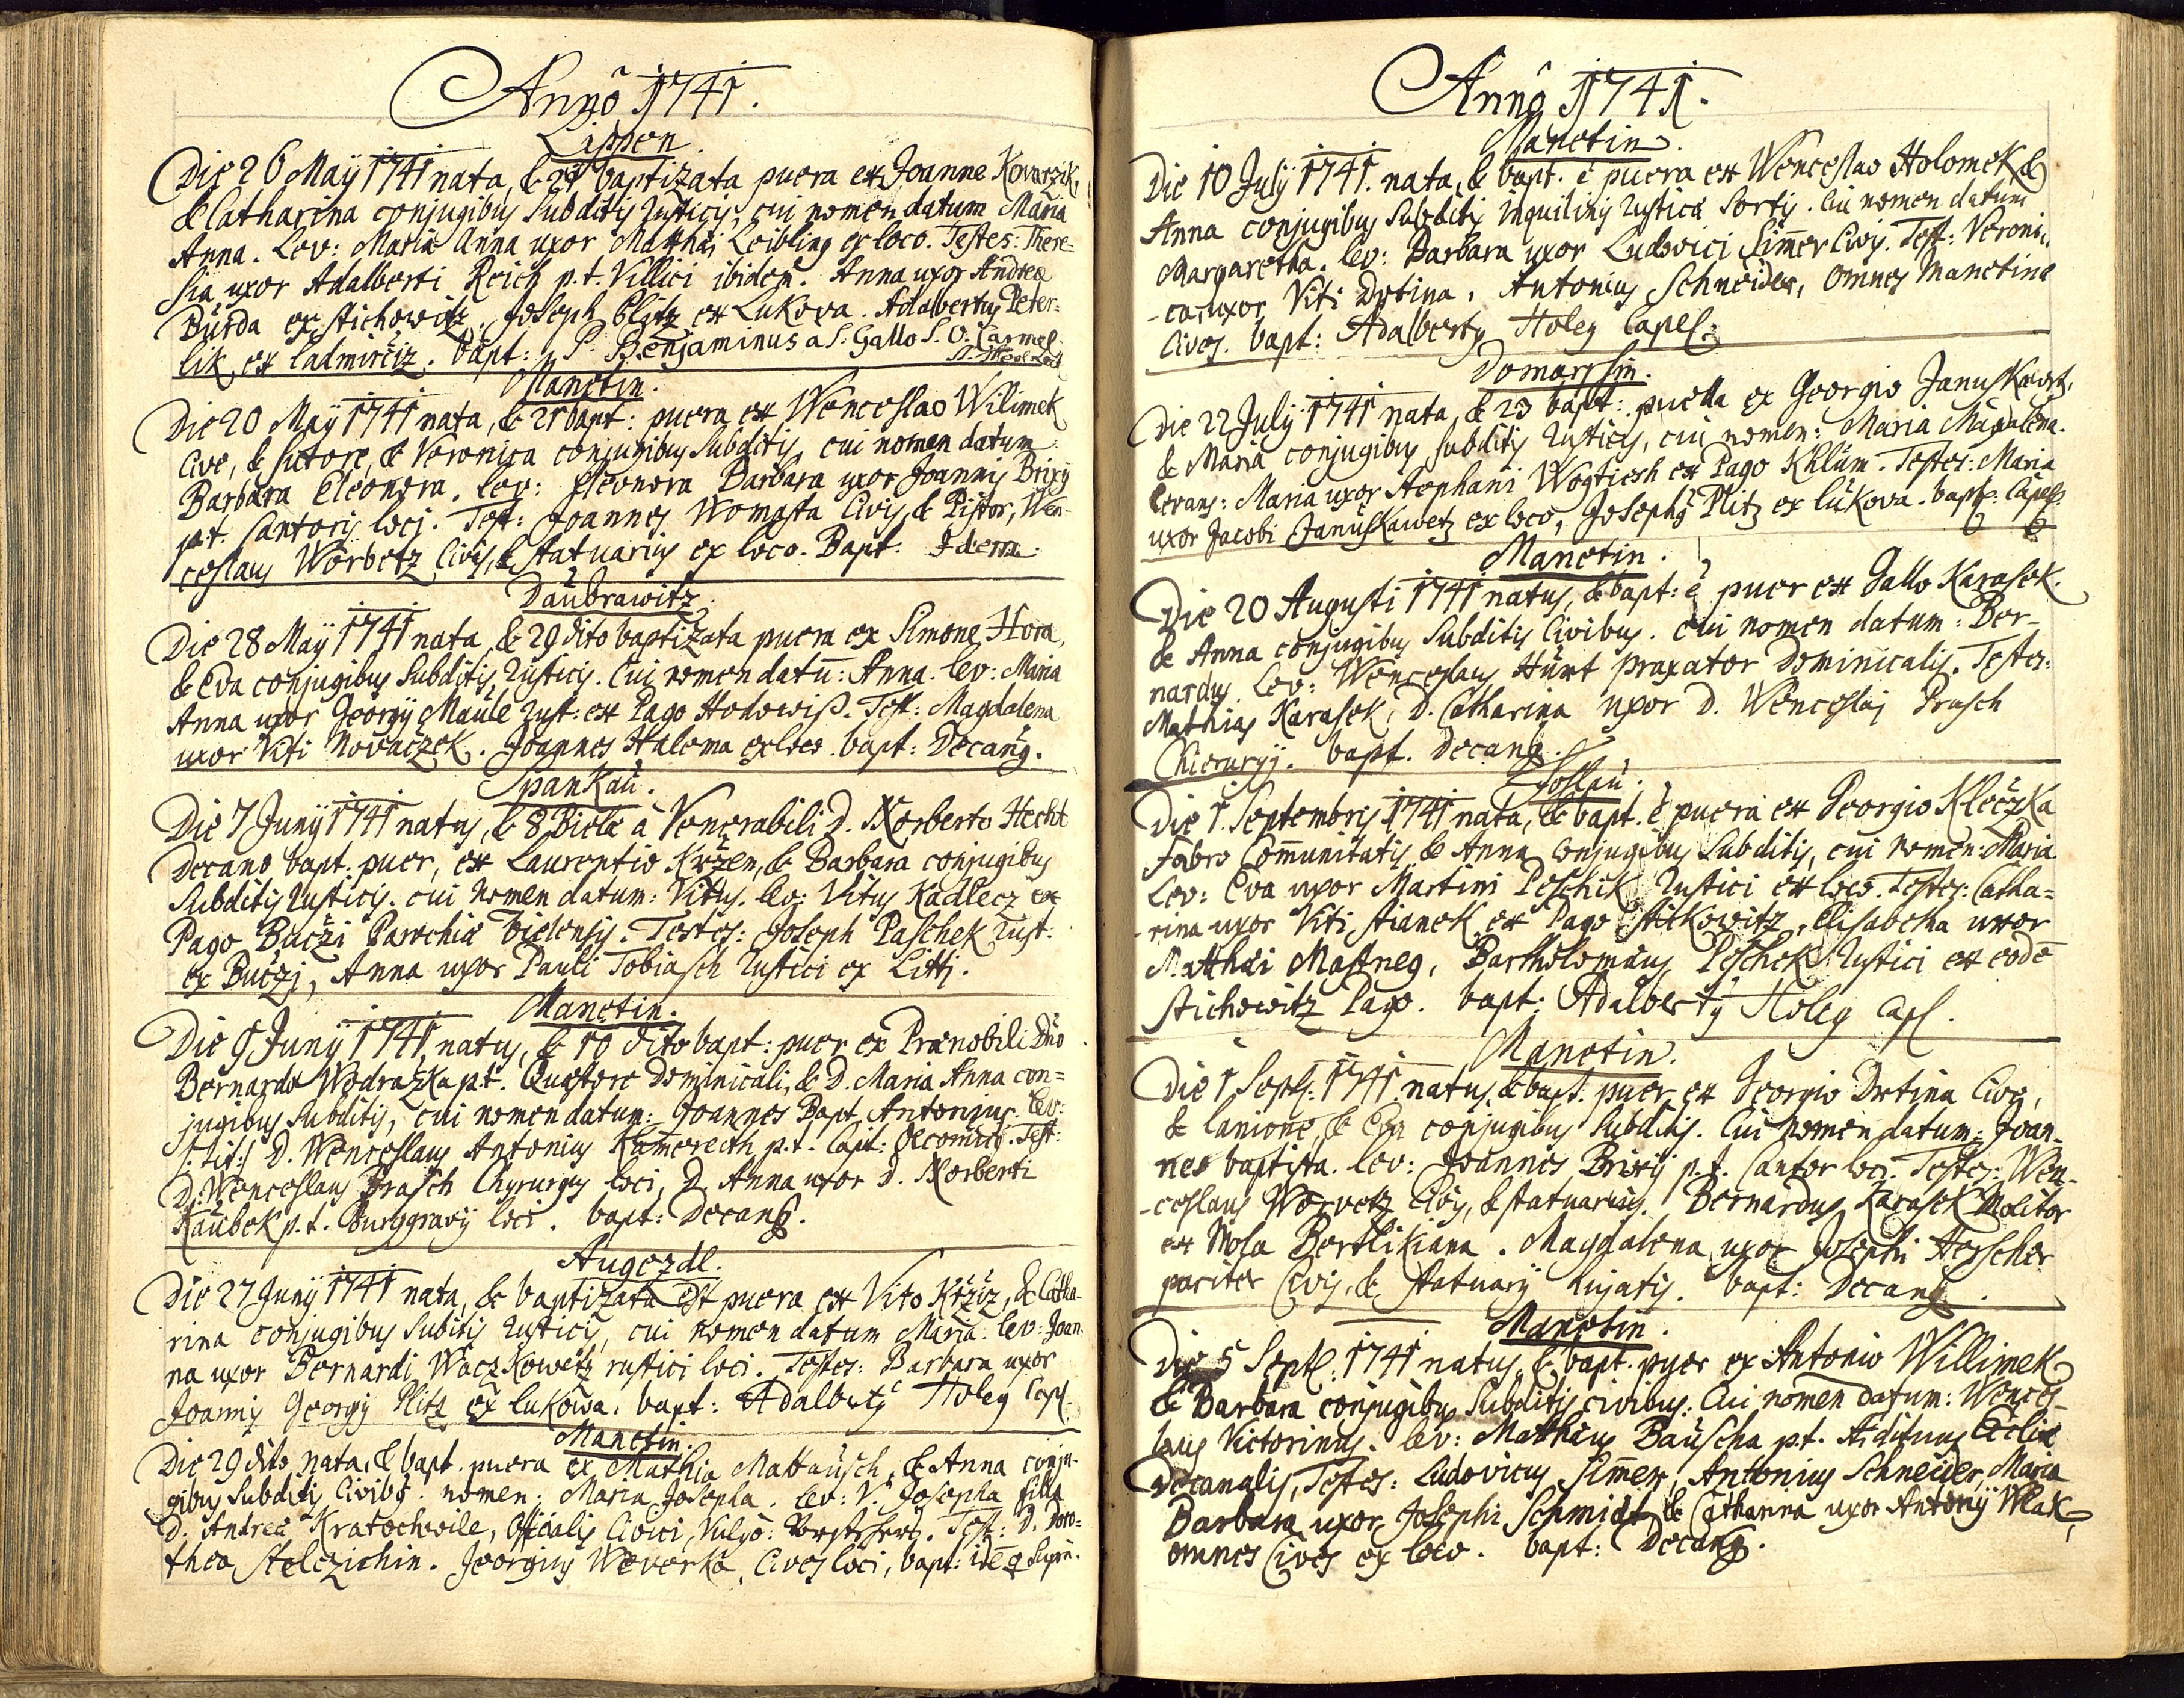 Anno 1741.
Lippen.
Die 26 Maÿ 1741 nata, & 27 baptizata puera ex Joanne Kovarzik,
& Catharina conjugibus Subditis Rusticis, cui nomen datum Maria
Anna. Lev: Maria Anna uxor Matthæi Leibling ex loco. Testes: There=
sia uxor Adalberti Reich p.t. Villici ibidem. Anna uxor Andreæ
Burda ex Stichowitz. Joseph Blitz ex Lukova. Adalbertus Peter-
lik ex Ladmirčiz. bapt: P. Benjaminus a S. Gallo S. O. Carmel.
Manetin.
Die 20 Maÿ 1741 nata, & 21 bapt: puera ex Wenceslao Wilimek
Cive, & sutore, & Veronica conjugibus Subditis, cui nomen datum
Barbara Eleonora. Lev: Eleonora Barbara uxor Joannis Brixÿ
p.t. Cantoris loci. Test: Joannes Womasta Civis, & Pistor, Wen-
ceslaus Worbetz Civis, & Statuarius ex loco. Bapt: Idem.
Daubrawitz.
Die 28 Maÿ 1741 nata, & 29 dito baptizata puera ex Simone Hora,
& Eva conjugibus Subditis Rusticis. Cui nomen datū: Anna. Lev: Maria
Anna uxor Georgÿ Maule Rust: ex Pago Hodowiß. Test: Magdalena
uxor Viti Novaczek. Joannes Haloma ex loco. bapt: Decanꝰ.
Spankau.
Die 7 Junÿ 1741 natus, & 8 Bielæ à Venerabili D. Norberto Hecht
Decano bapt: puer, ex Laurentio Kržen, & Barbara conjugibus
Subditis Rusticis. cui nomen datum: Vitus. Lev: Vitus Kadlecz ex
Pago Bučzi Parochiæ Bielensis. Testes: Joseph Paschek Rust:
ex Bučzj, Anna uxor Pauli Tobiasch Rustici ex Litti.
Manetin.
Die 9 Junÿ 1741 natus, & 10 dito bapt: puer ex Prænobili Dno
Bernardo Wodražka p.t. Quæstore Dominicali, & D. Maria Anna con=
jugibus Subditis, cui nomen datum: Joannes Bapt. Antonius. Lev:
/:tit:/ D. Wenceslaus Antonius Kamereith p.t. Capt: Œcomicꝰ. Test:
D. Wenceslaus Prasch Chyrurgus loci, D. Anna uxor D. Norberti
Kaubek p.t. Burggravÿ loci. bapt: Decanꝰ.
Augezdl.
Die 27 Junÿ 1741 nata, & baptizata est puera ex Vito Kržiz, & Catha-
rina conjugibus Subitis Rusticis, cui nomen datum Maria. Lev: Joan-
na uxor Bernardi Waczkowetz rustici loci. Testes: Barbara uxor
Joannis Georgÿ Plitz ex Lukowa. bapt: Adalbertꝰ Holeg Capl.
Manetin.
Die 29 dito nata, & bapt. puera ex Mathia Mattausch, & Anna conju-
gibus Subditis Civibꝰ. nomen: Maria Josepha. Lev: V. Josepha filia
D. Andreæ Kratochwile, Officialis Civici, Vulgò: Test: D. Doro=
thea Stelczichin. Georgius Weverka, Cives loci, bapt: idē q supra.
Anno 1741.
Manetin.
Die 10 Julÿ 1741. nata, & bapt. ē puera ex Wenceslao Holomek, &
Anna conjugibus Subditis inquilinis Rusticæ Sortis. Cui nomen datum
Margaretha. Lev: Barbara uxor Ludovici Sim̄er Civis. Test: Veroni-
-ca, uxor Viti Drtina, Antonius Schneider, Omnes Manetinæ
Cives. bapt: Adalbertꝰ Holeg Capel:
Domarrsin.
Die 22 Julÿ 1741 nata, & 23 bapt: puella ex Georgio Januskawetz,
& Maria conjugibus subditis Rusticis, cui nomen: Maria Magdalena.
Levans: Maria uxor Stephani Wogtiesh ex Pago Khlum. Testes: Maria
uxor Jacobi Januskawetz ex loco, Josephꝰ Plitz ex Lukova. bapt: Capel:
Manetin.
Die 20 Augusti 1741 natus, & bapt: ē puer ex Gallo Karasek.
& Anna conjugibus Subditis Civibus. cui nomen datum: Ber-
nardus. Lev: Wenceslaus Hurt praxator Dominicalis. Testes:
Mathias Karasek, D. Catharina uxor D. Wenceslai Prasch
Chierurgÿ. bapt. Decanꝰ.
Zoslau.
Die 1. Septembris 1741 nata, & bapt. ē puera ex Georgio Klečzka
Fabro Com̄unitatis, & Anna conjugibus Subditis, cui nomen: Maria.
Lev: Eva uxor Martini Peschik Rustici ex loco. Testes: Catha=
-rina uxor Viti Stianek ex Pago Stikowitz, Elisabetha uxor
Matthæi Mastneg, Bartholomæus Peschek Rustici ex eodē
Stichowitz Pago. bapt: Adalbertꝰ Holeg Capl.
Manetin.
Die 1 Sept: 1741. natus, & bapt. puer ex Georgio Drtina Cive,
& Lanione, & Eva conjugibus Subditis. Cui nomen datum: Joan-
nes baptista. Lev: Joannes Brixÿ p.t. Cantor loci. Testes: Wen-
-ceslaus Worvetz Civis, & Statuarius. Bernardus Karasek Molitor
ex Mola Bertlikiana. Magdalena uxor Josephi Herscher
pariter Civis, & Statuarÿ hujatis. bapt: Decanꝰ.
Manetin.
Die 5 Sept. 1741 natus, & bapt. puer ex Antonio Willimek
& Barbara conjugibus Subditis civibus. Cui nomen datum: Wences-
laus Victorinus. Lev: Matthæus Bauscha p.t. Ædituus Ecclæ
Decanalis, Testes: Ludovicus Sim̄er, Antonius Schneider, Maria
Barbara uxor Josephi Schmidt, & Catharina uxor Antonÿ Wlak,
omnes Cives ex loco. bapt: Decanꝰ.